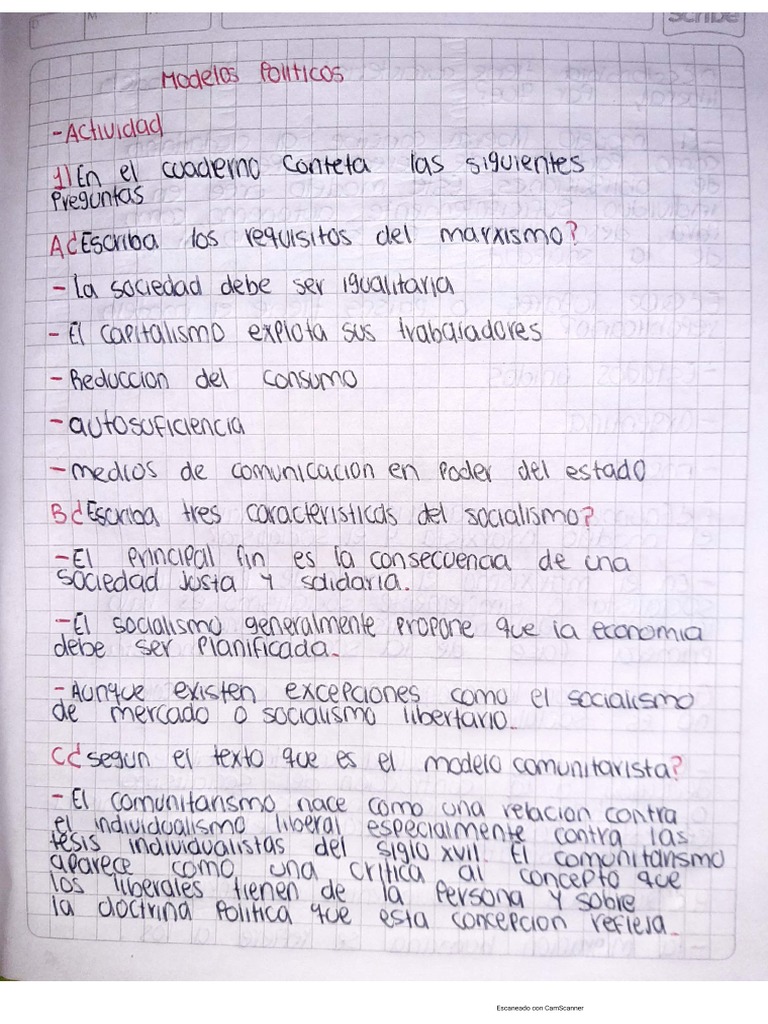 Scribe
Modelos Politicos
- Actividad
1) En el cuaderno Conteta las siguientes
Preguntas
A¿ Escriba los requisitos del marxismo?
- La sociedad debe ser igualitaria
- El capitalismo explota sus trabajadores
- Reduccion del consumo
- autosuficiencia
- medios de comunicacion en Poder del estado
B¿ Escriba tres caracteristicas del socialismo?
- El principal fin es la consecuencia de una
sociedad justa y solidaria.
- El socialismo generalmente propone que la economia
debe ser Planificada.
- Aunque existen excepciones como el socialismo
de mercado o socialismo libertario.
C¿ segun el texto que es el modelo comunitarista?
- El comunitarismo nace como una relacion contra
el individualismo liberal especialmente contra las
tesis individualistas del siglo XVII. El comunitarismo
aparece como una critica al concepto que
los liberales tienen de la Persona y sobre
la doctrina Politica que esta concepcion refleja.
Escaneado con CamScanner